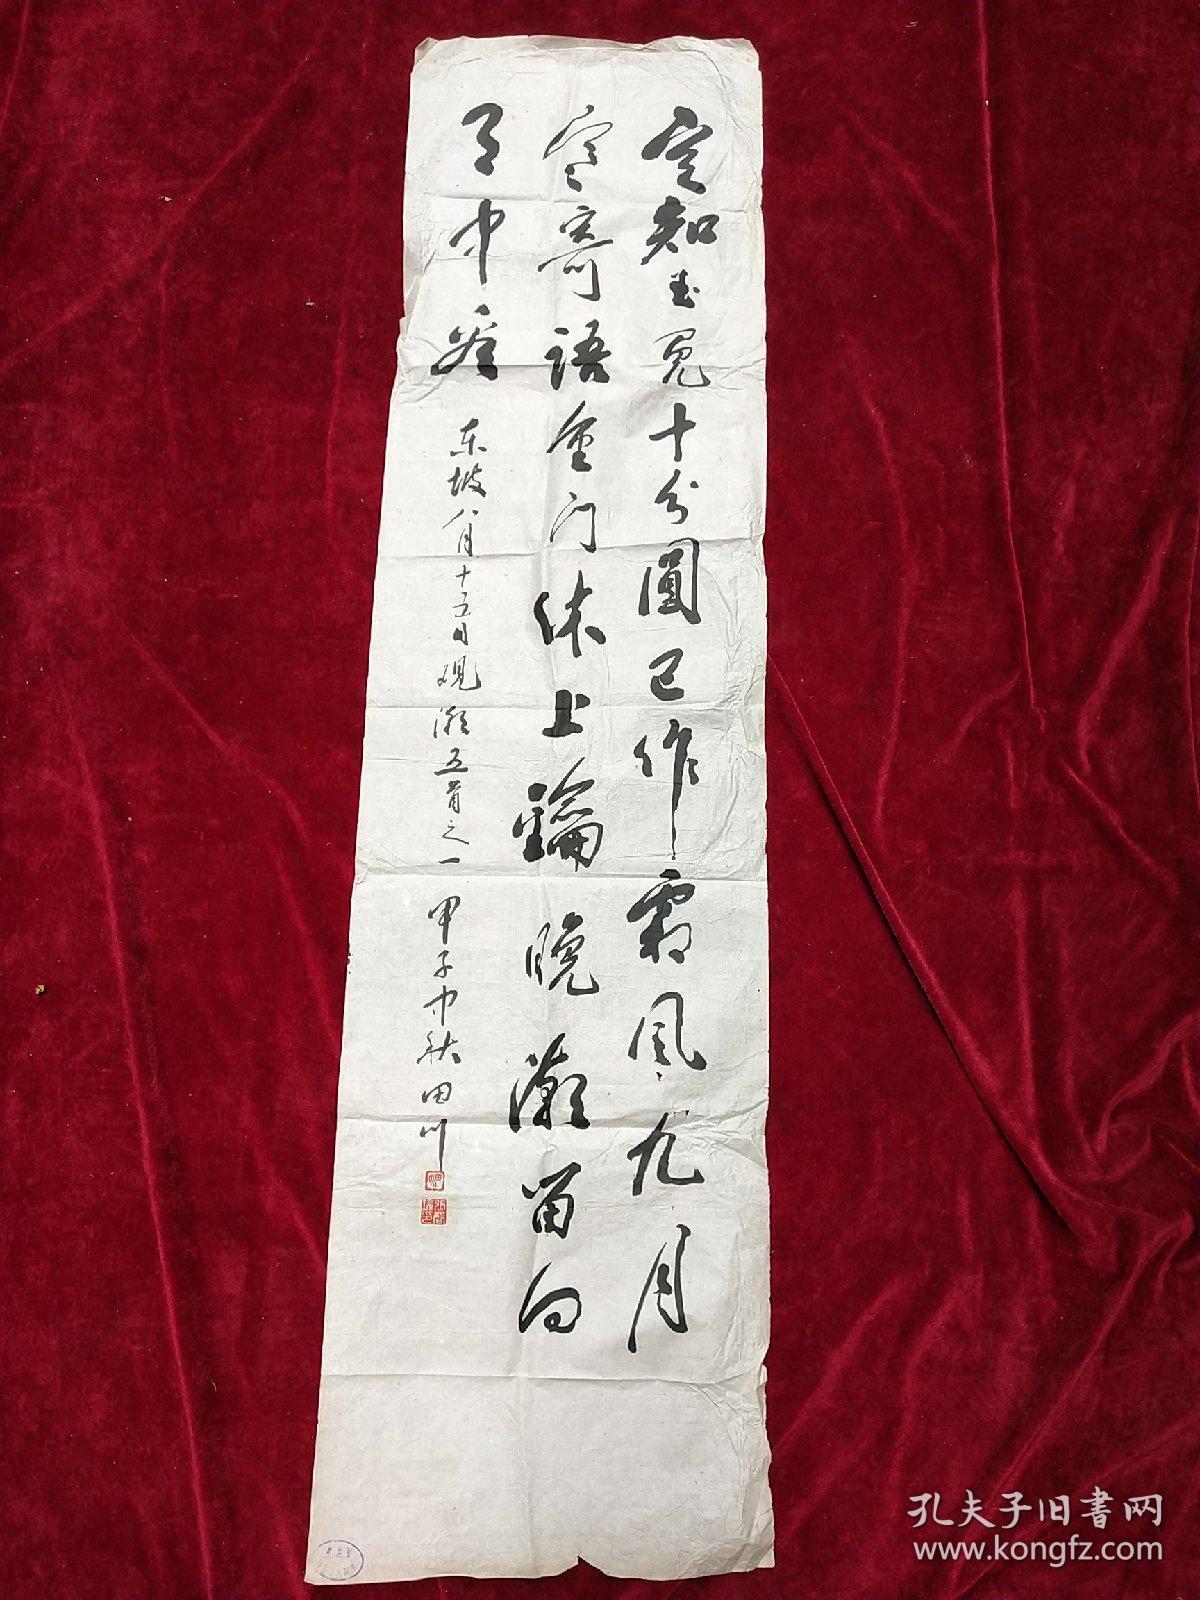 定知玉兔十分圆已作霜风九月
寒寄语重门休上钥晚潮留向
月中看
东坡八月十五日观潮五首之一
甲子中秋田川
孔夫子旧书网
www.kongfz.com